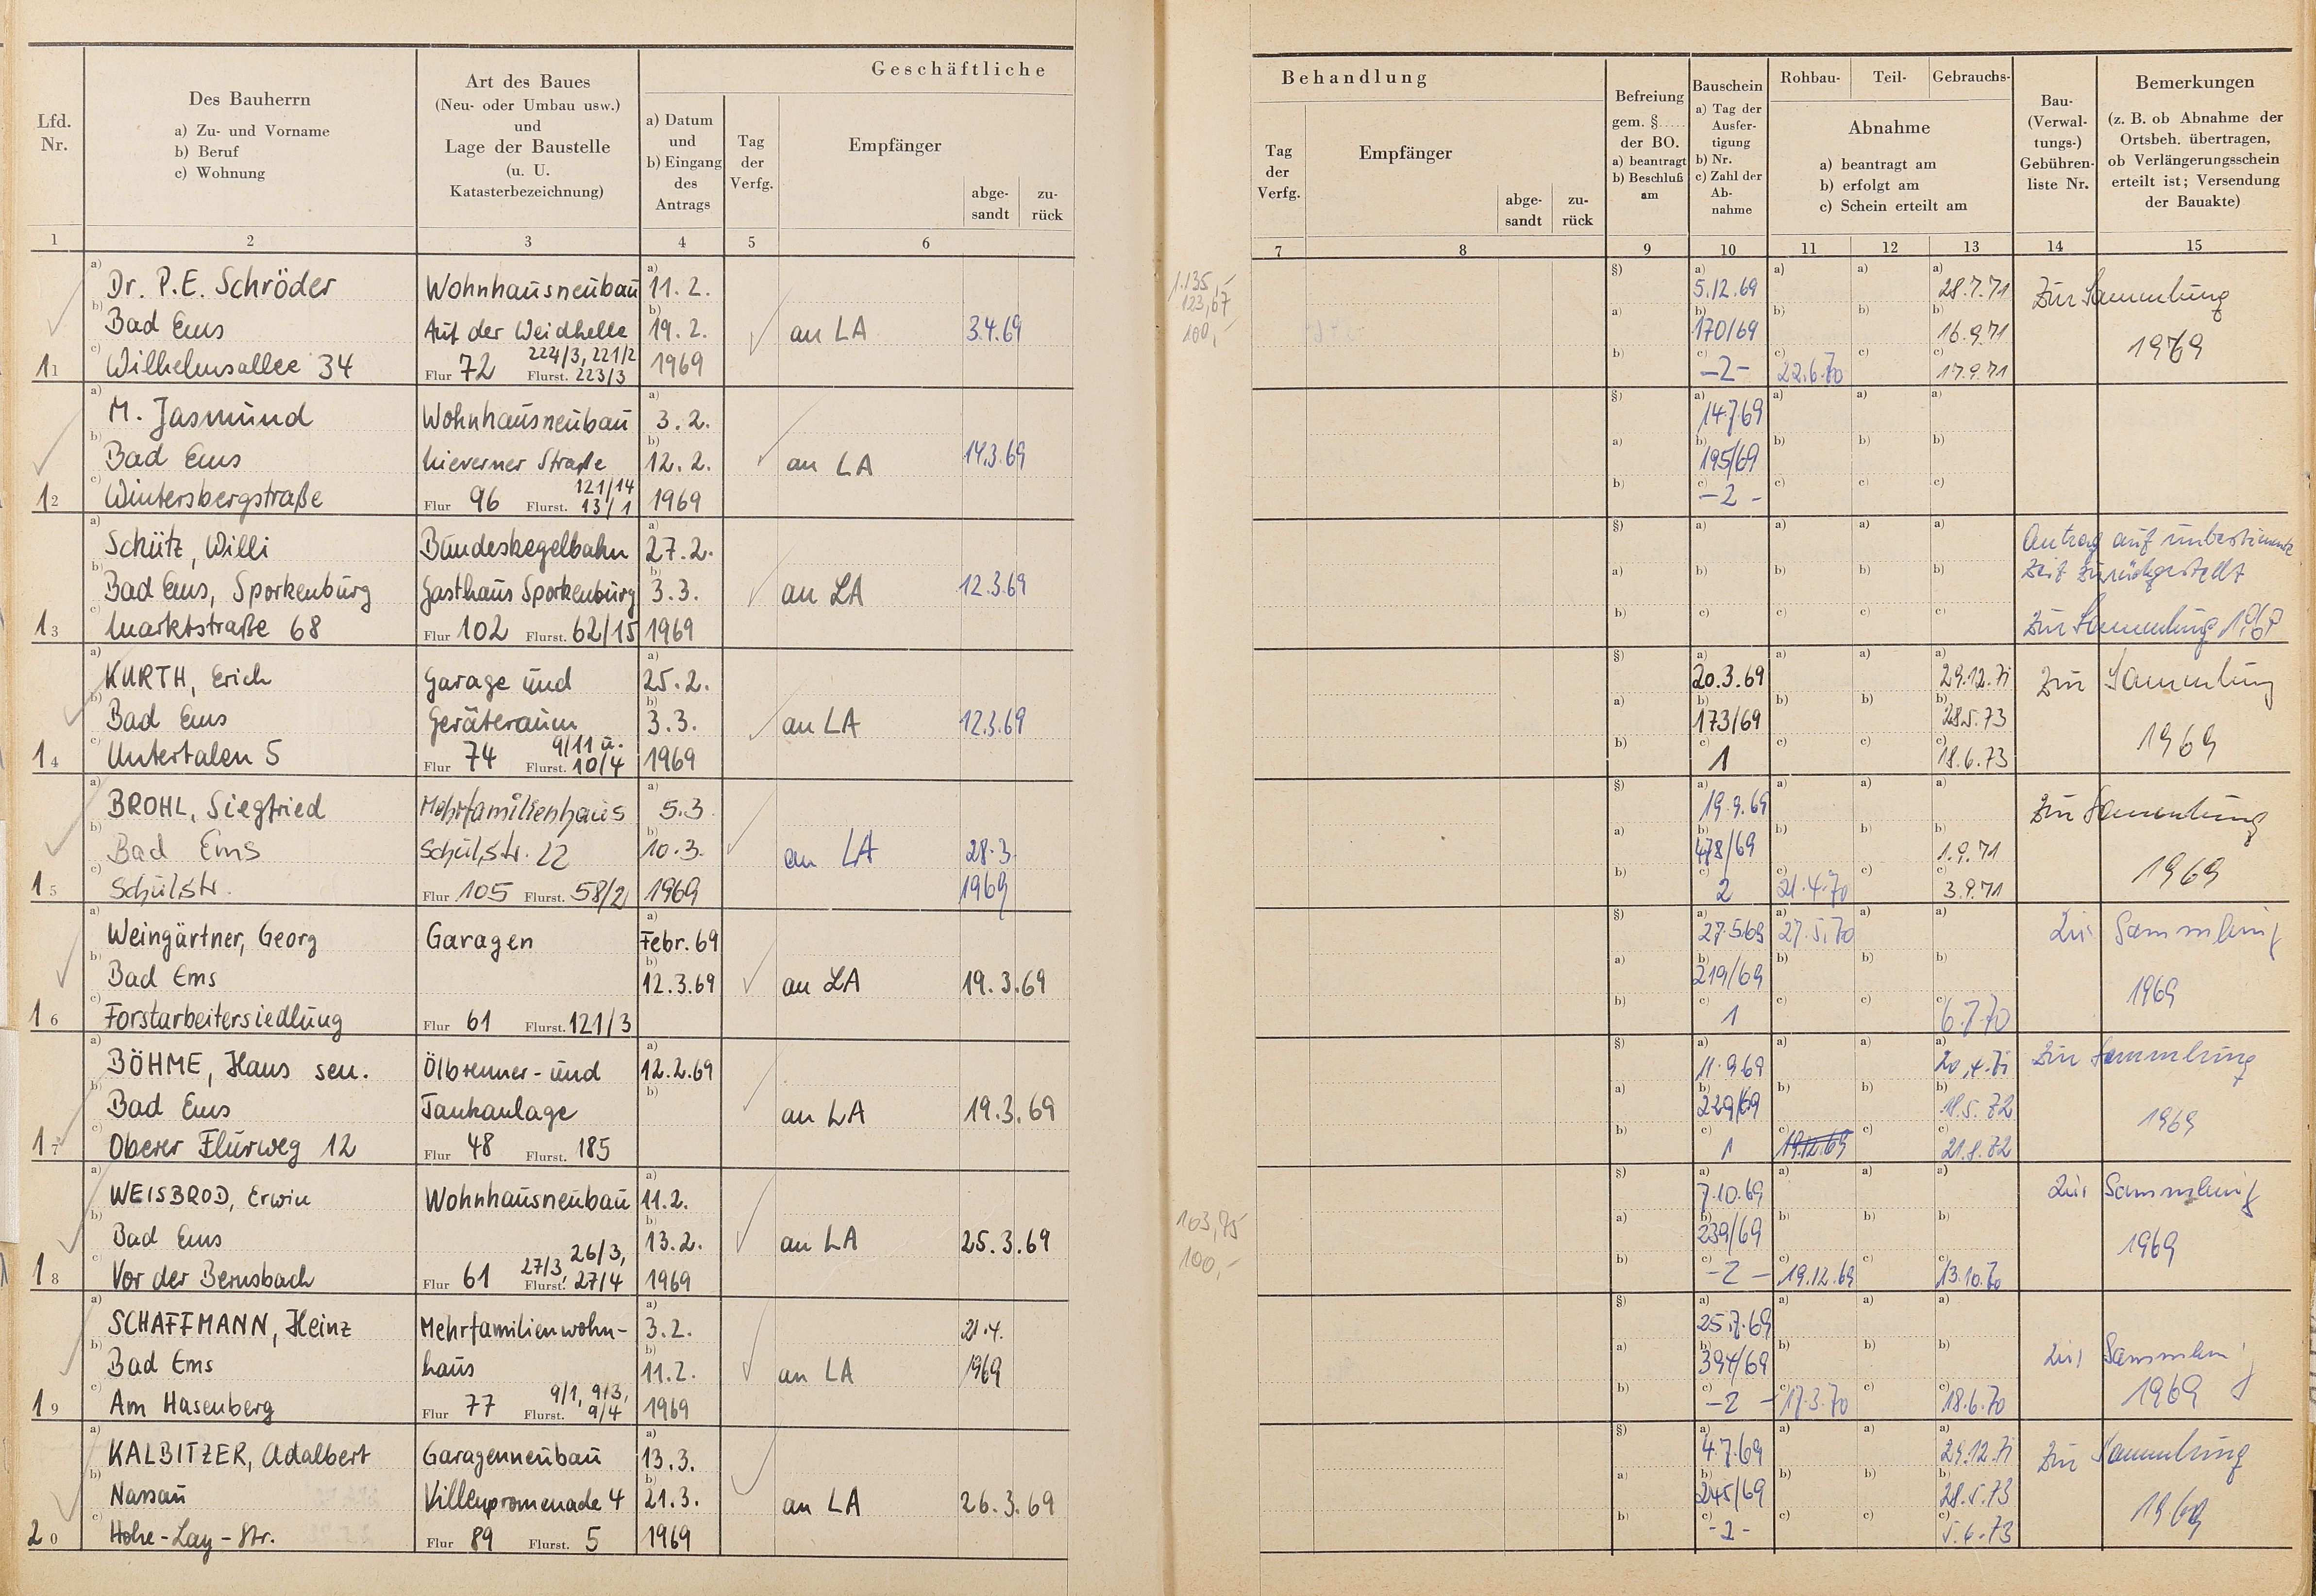 Geschäftliche
Behandlung
Lfd. Nr.
Des Bauherrn
a) Zu- und Vorname
b) Beruf
c) Wohnung
Art des Baues
(Neu- oder Umbau usw.)
und
Lage der Baustelle
(u. U.
Katasterbezeichnung)
a) Datum
und
b) Eingang
des
Antrags
Tag
der
Verfg.
Empfänger
abge-
sandt
zu-
rück
Tag
der
Verfg.
Empfänger
abge-
sandt
zu-
rück
Befreiung
gem. §.....
der BO.
a) beantragt
b) Beschluß
am
Bauschein
a) Tag der
Ausfer-
tigung
b) Nr.
c) Zahl der
Ab-
nahme
Rohbau-
Teil-
Gebrauchs-
Abnahme
a) beantragt am
b) erfolgt am
c) Schein erteilt am
Bau-
(Verwal-
tungs-)
Gebühren-
liste Nr.
Bemerkungen
(z. B. ob Abnahme der
Ortsbeh. übertragen,
ob Verlängerungsschein
erteilt ist; Versendung
der Bauakte)
1 2 3 4 5 6 7 8 9 10 11 12 13 14 15
a) Dr. P.E. Schröder Wohnhausneubau a) 11. 2. §) a) 5.12.69 a) a) a) 28.7.71 Zur Sammlung
b) Bad Ems Auf der Weidhelle b) 19. 2. an LA 3.4.69 a) b) 170/69 b) b) b) 16.9.71 1969
224/3, 221/2
11 c) Wilhelmsallee 34 Flur 72 Flurst. 223/3 1969 b) c) -2- c) 22.6.70 c) c) 17.9.71
1.135,-
123,67
100,-
a) M. Jasmund Wohnhausneubau a) 3. 2. §) a) 14.7.69 a) a) a)
b) Bad Ems Nieverner Straße b) 12. 2. an LA 14.3.69 a) b) 195/69 b) b) b)
121/14
12 c) Wintersbergstraße Flur 96 Flurst. 13/1 1969 b) c) -2- c) c) c)
a) Schütz, Willi Bundeskegelbahn a) 27. 2. §) a) a) a) a) Antrag auf unbestimmte
b) Bad Ems, Sporkenburg Gasthaus Sporkenburg b) 3. 3. an LA 12.3.69 a) b) b) b) b) Zeit zurückgestellt
13 c) Marktstraße 68 Flur 102 Flurst. 62/15 1969 b) c) c) c) c) Zur Sammlung 1969
a) KURTH, Erich Garage und a) 25. 2. §) a) 20.3.69 a) a) a) 29.12.71 Zur Sammlung
b) Bad Ems Geräteraum b) 3. 3. an LA 12.3.69 a) b) 173/69 b) b) b) 28.5.73 1969
9/11 u.
14 c) Untertalen 5 Flur 74 Flurst. 10/4 1969 b) c) 1 c) c) c) 18.6.73
a) BROHL, Siegfried Mehrfamilienhaus a) 5.3. §) a) 19.9.69 a) a) a) Zur Sammlung
b) Bad Ems Schulstr. 22 b) 10.3. an LA 28.3. a) b) 478/69 b) b) b) 1.9.71 1969
15 c) Schulstr. Flur 105 Flurst. 58/2 1969 1969 b) c) 2 c) 21.4.70 c) c) 3.9.71
a) Weingärtner, Georg Garagen a) Febr. 69 §) a) 27.5.69 a) 27.5.70 a) a) Zur Sammlung
b) Bad Ems b) 12.3.69 an LA 19.3.69 a) b) 219/69 b) b) b) 1969
16 c) Forstarbeitersiedlung Flur 61 Flurst. 121/3 b) c) 1 c) c) c) 6.7.70
a) BÖHME, Hans sen. Ölbrenner- und a) 12.2.69 §) a) 11.9.69 a) a) a) 20.4.71 Zur Sammlung
b) Bad Ems Tankanlage b) an LA 19.3.69 a) b) 229/69 b) b) b) 18.5.72 1969
17 c) Oberer Flurweg 12 Flur 48 Flurst. 185 b) c) 1 c) 19.12.69 c) c) 21.8.72
a) WEISBROD, Erwin Wohnhausneubau a) 11.2. §) a) 7.10.69 a) a) a) Zur Sammlung
b) Bad Ems b) 13.2. an LA 25.3.69 a) b) 239/69 b) b) b) 1969
27/3, 26/3,
18 c) Vor der Bernsbach Flur 61 Flurst. 27/4 1969 b) c) -2- c) 19.12.69 c) c) 13.10.70
103,75
100,-
a) SCHAFFMANN, Heinz Mehrfamilienwohn- a) 3.2. 21.4. §) a) 25.7.69 a) a) a)
b) Bad Ems haus b) 11.2. an LA 1969 a) b) 394/69 b) b) b) Zur Sammlung
9/1, 9/3,
19 c) Am Hasenberg Flur 77 Flurst. 9/4 1969 b) c) -2- c) 17.3.70 c) c) 18.6.70 1969
a) KALBITZER, Adalbert Garagenneubau a) 13.3. §) a) 4.7.69 a) a) a) 29.12.71 Zur Sammlung
b) Nassau Villenpromenade 4 b) 21.3. an LA 26.3.69 a) b) 245/69 b) b) b) 28.5.73 1969
20 c) Hohe-Lay-Str. Flur 89 Flurst. 5 1969 b) c) -2- c) c) c) 5.6.73